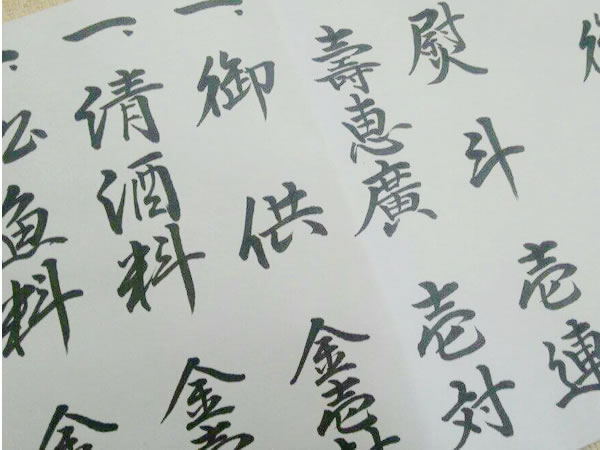 熨斗 壱連
壽恵廣 壱対
一、御供 金壱
一、清酒料 金壱
魚料 金